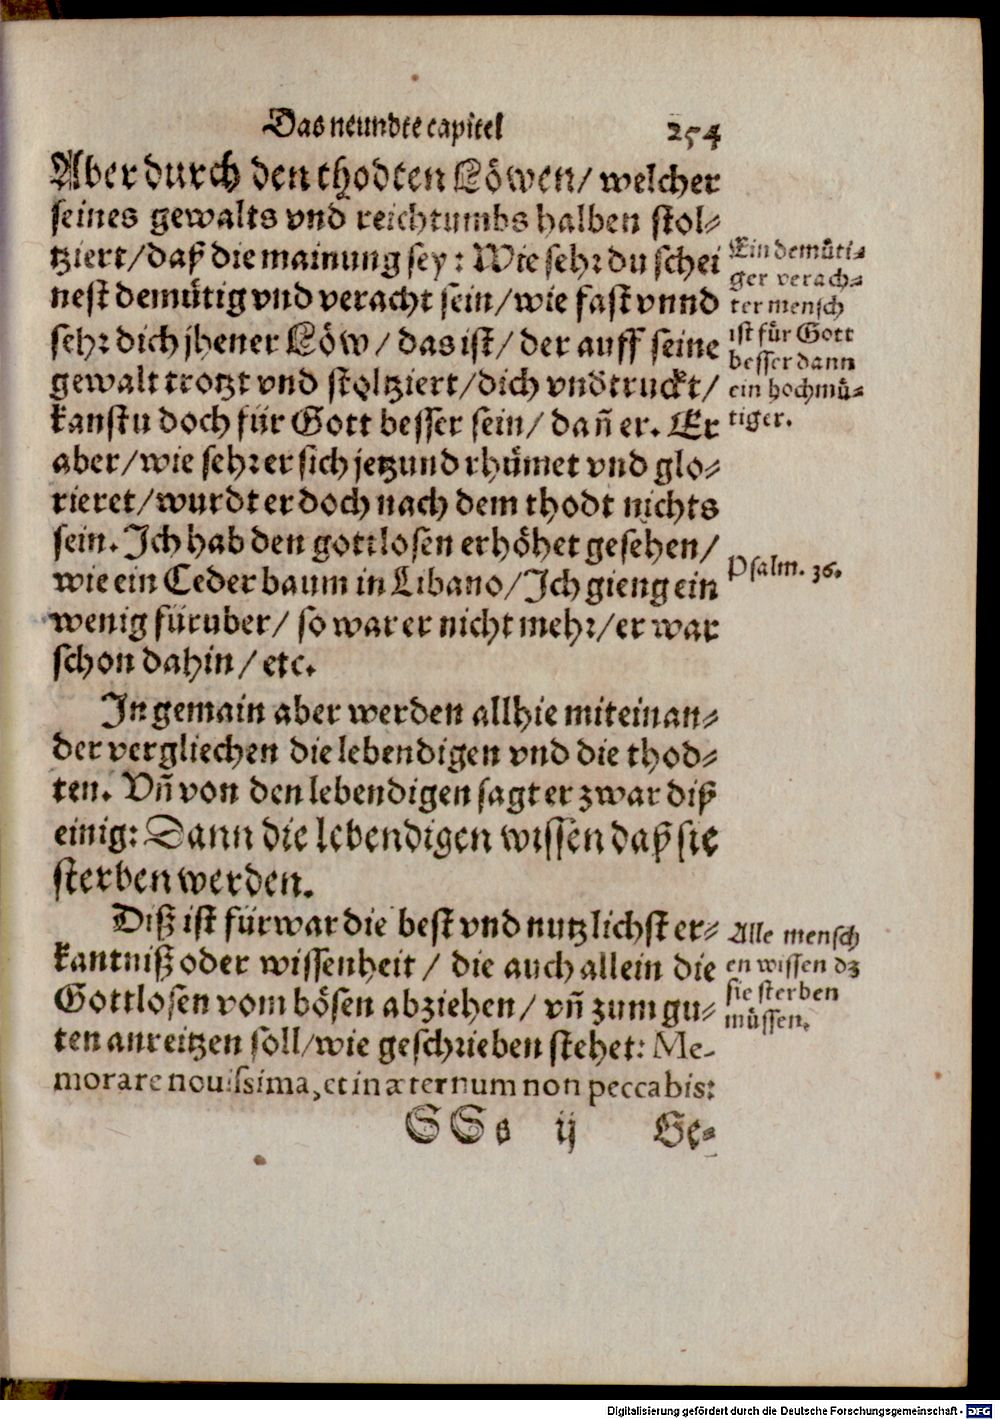 Das neundte capitel 254
Aber durch den thodten Löwen/ welcher
seines gewalts vnd reichtumbs halben stol-
tziert/daß die mainung sey: Wie sehr du schei
nest demütig vnd veracht sein/wie fast vnnd
sehr dich jhener Löw/das ist/ der auff seine
gewalt trotzt vnd stoltziert/dich vndtruckt/
kanstu doch für Gott besser sein/ dañ er. Er
aber/wie sehr er sich jetzund rhümet vnd glo-
rieret/wurdt er doch nach dem thodt nichts
sein. Ich hab den gottlosen erhöhet gesehen/
wie ein Ceder baum in Libano/Ich gieng ein
wenig füruber/ so war er nicht mehr/er war
schon dahin/etc.
Ein demüti-
ger verach-
ter mensch
ist für Gott
besser dann
ein hochmü-
tiger.
Psalm. 36.
In gemain aber werden allhie miteinan-
der vergliechen die lebendigen vnd die thod-
ten. Vñ von den lebendigen sagt er zwar diß
einig: Dann die lebendigen wissen daß sie
sterben werden.
Diß ist fürwar die best vnd nutzlichst er-
kantniß oder wissenheit/ die auch allein die
Gottlosen vom bösen abziehen/ vñ zum gu-
ten anreitzen soll/wie geschrieben stehet: Me-
morare nouissima, et in æternum non peccabis:
Alle mensch
en wissen dz
sie sterben
müssen.
SSs ij Ge-
Digitalisierung gefördert durch die Deutsche Forschungsgemeinschaft - DFG